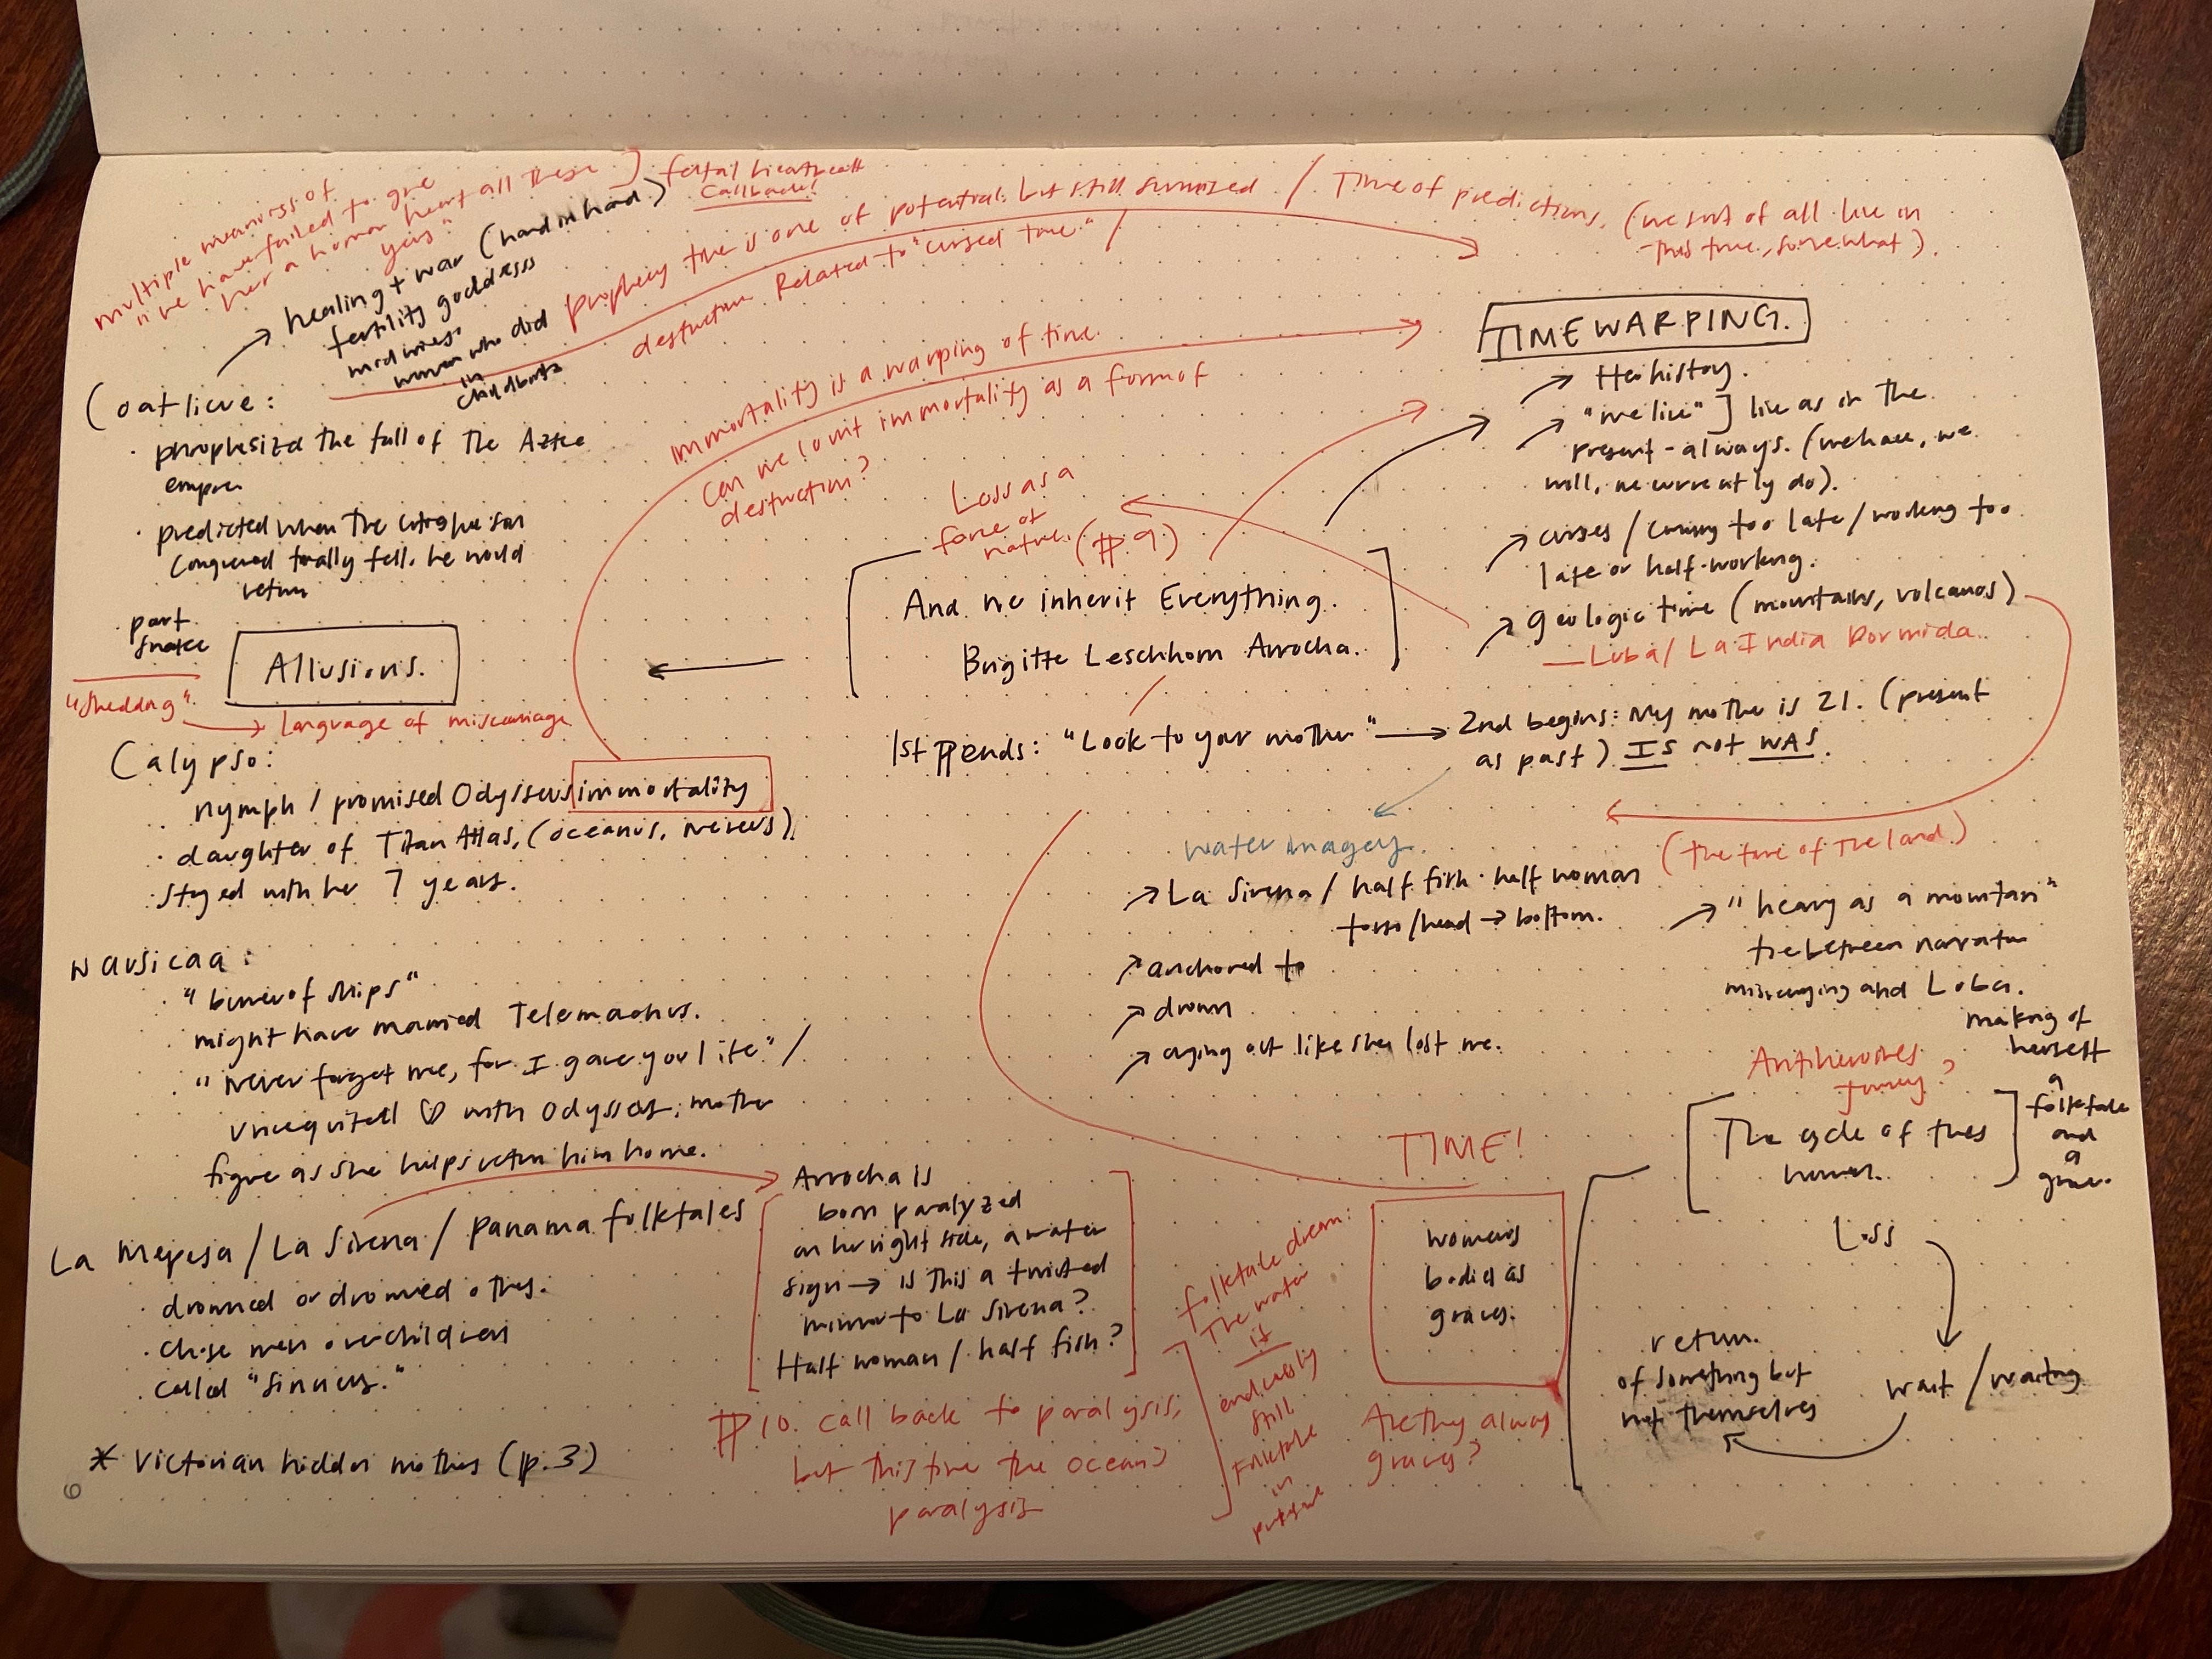 multiple meanings of
"we have failed to give
her a human heart all these
years"
] fetal heartbeat
callback!
healing + war (hand in hand)
fertility goddess
midwives
women who died
in
childbirth
prophecy time is one of potential. but still surmized / Time of predictions. (we sort of all live in
this time, somewhat).
destruction Related to "cursed time" /
Coatlicue:
· prophesized the fall of the Aztec
empire
· predicted when the cities her son
conquered finally fell, he would
return
· part
snake
"shedding"
→ language of miscarriage
Allusions.
Immortality is a warping of time.
Can we count immortality as a form of
destruction?
Loss as a
force of
nature. (¶. 9)
And we inherit Everything.
Brigitte Leschhorn Arrocha.
TIME WARPING.
history.
"we live" ] live as in the
present - always. (we have, we
will, we currently do).
curses / coming too late / working too
late or half-working.
geologic time (mountains, volcanos)
— Luba / La India Dormida.
1st ¶ ends: "Look to your mother" → 2nd begins: My mother is 21. (present
as past) IS not WAS.
Calypso:
· nymph / promised Odysseus immortality
· daughter of Titan Atlas, (oceanus, nereus)
· stayed with her 7 years.
water imagery.
La Sirena / half fish · half woman
torso/head → bottom.
anchored to
drown
crying out like she lost me.
(the time of the land.)
"heavy as a mountain"
tie between narrator
miscarrying and Luba.
Nausicaa:
"burner of ships"
might have married Telemachus.
"never forget me, for I gave you life." /
unrequited ♡ with Odysseus; mother
figure as she helps return him home.
La Mepesa / La Sirena / Panama folktales
· drowned or drowned others.
· chose men over children
· called "sinners."
Arrocha is
born paralyzed
on her right side, a water
sign → is this a twisted
mirror to La Sirena?
Half woman / half fish?
¶ 10. call back to paralysis,
but this time the oceans
paralysis
folktale dream:
The water
is
endlessly
still
Folktale
in
TIME!
womens
bodies as
graves.
Are they always
graves?
Antiheroines
Journey?
making of
herself
a
folktale
and
a
grave.
The cycle of this
Loss
wait / waiting
return.
of something but
not themselves
* Victorian hidden mothers (p. 3)
6